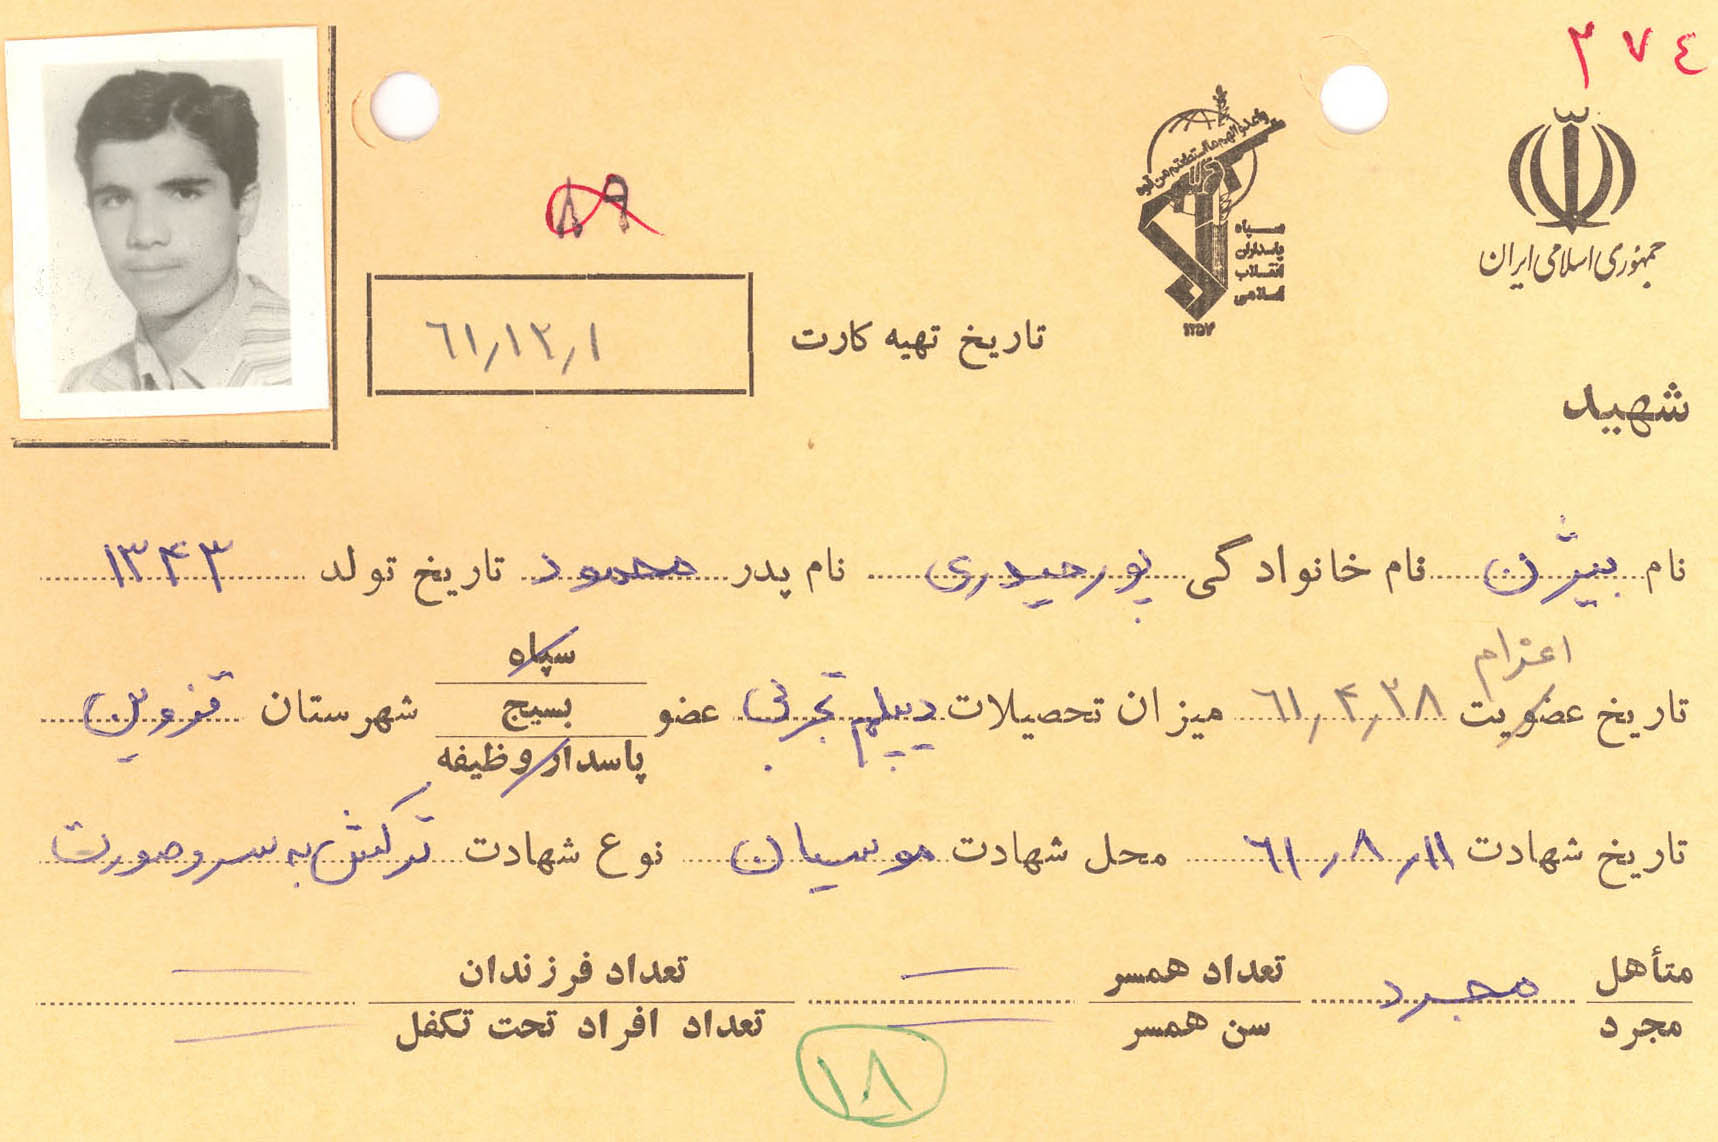 ٢٧٤
جمهوری اسلامی ایران
واعدوا لهم ما استطعتم من قوة
سپاه
پاسداران
انقلاب
اسلامی
۱۳۵۷
۸۹
تاریخ تهیه کارت ۶۱٫۱۲٫۱
شهید
نام بیژن نام خانوادگی پورحیدری نام پدر محمود تاریخ تولد ۱۳۴۳
اعزام
سپاه
تاریخ عضویت ۶۱٫۴٫۲۸ میزان تحصیلات دیپلم تجربی عضو بسیج شهرستان قزوین
پاسدار وظیفه
تاریخ شهادت ۶۱٫۸٫۱۱ محل شهادت موسیان نوع شهادت ترکش به سر و صورت
متأهل مجرد تعداد همسر — تعداد فرزندان —
مجرد سن همسر — تعداد افراد تحت تکفل —
۱۸